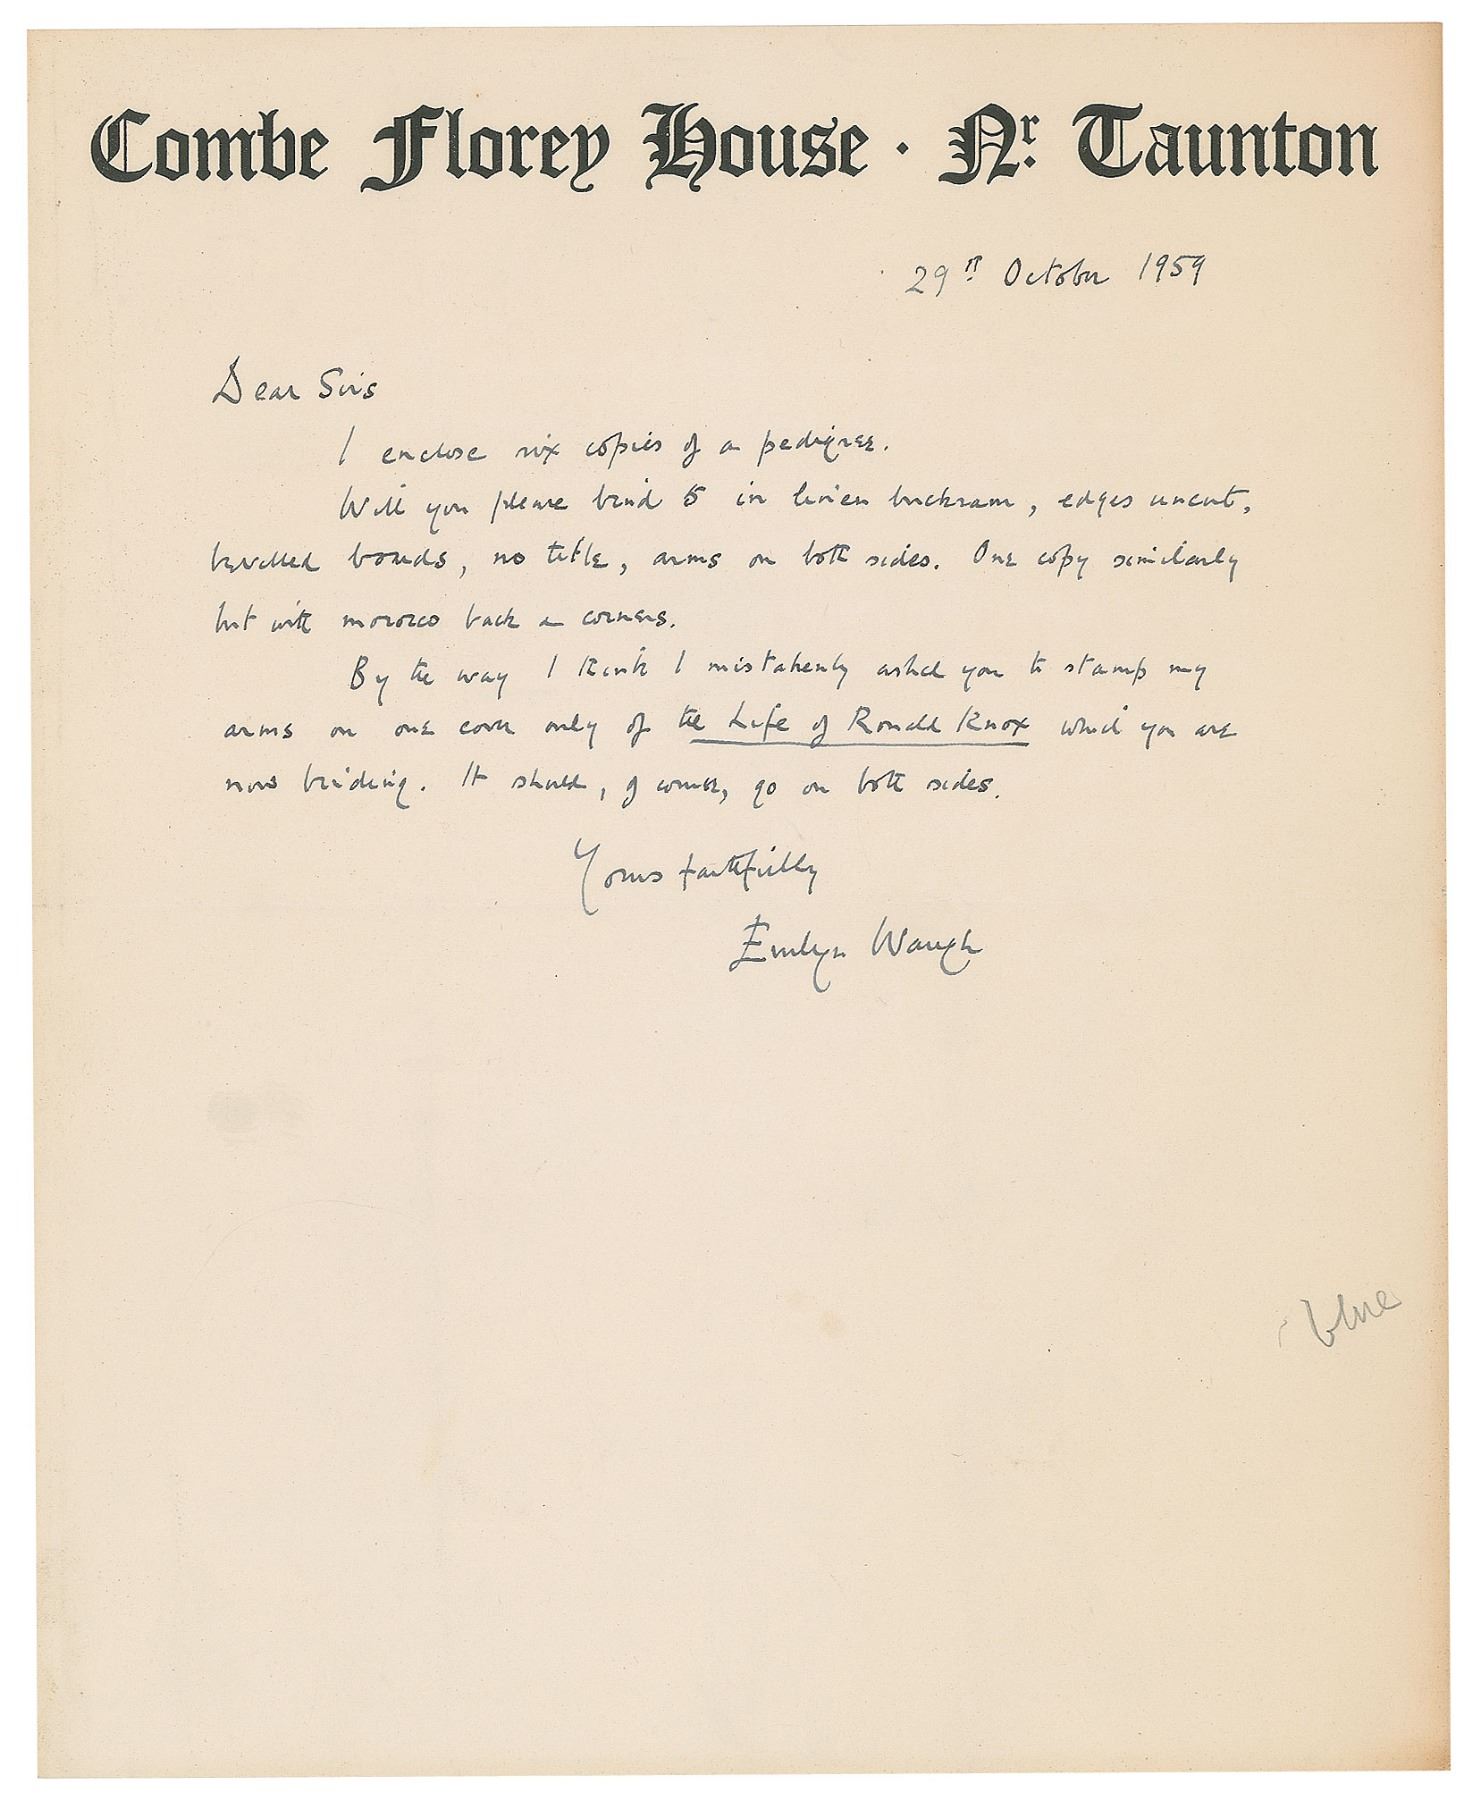 Combe Florey House · Nr. Taunton
29th October 1959
Dear Sirs
I enclose six copies of a pedigree.
Will you please bind 5 in linen buckram, edges uncut,
bevelled boards, no title, arms on both sides. One copy similarly
but with morocco back & corners.
By the way I think I mistakenly asked you to stamp my
arms on one cover only of the Life of Ronald Knox which you are
now binding. It should, of course, go on both sides.
Yours faithfully
Evelyn Waugh
blue